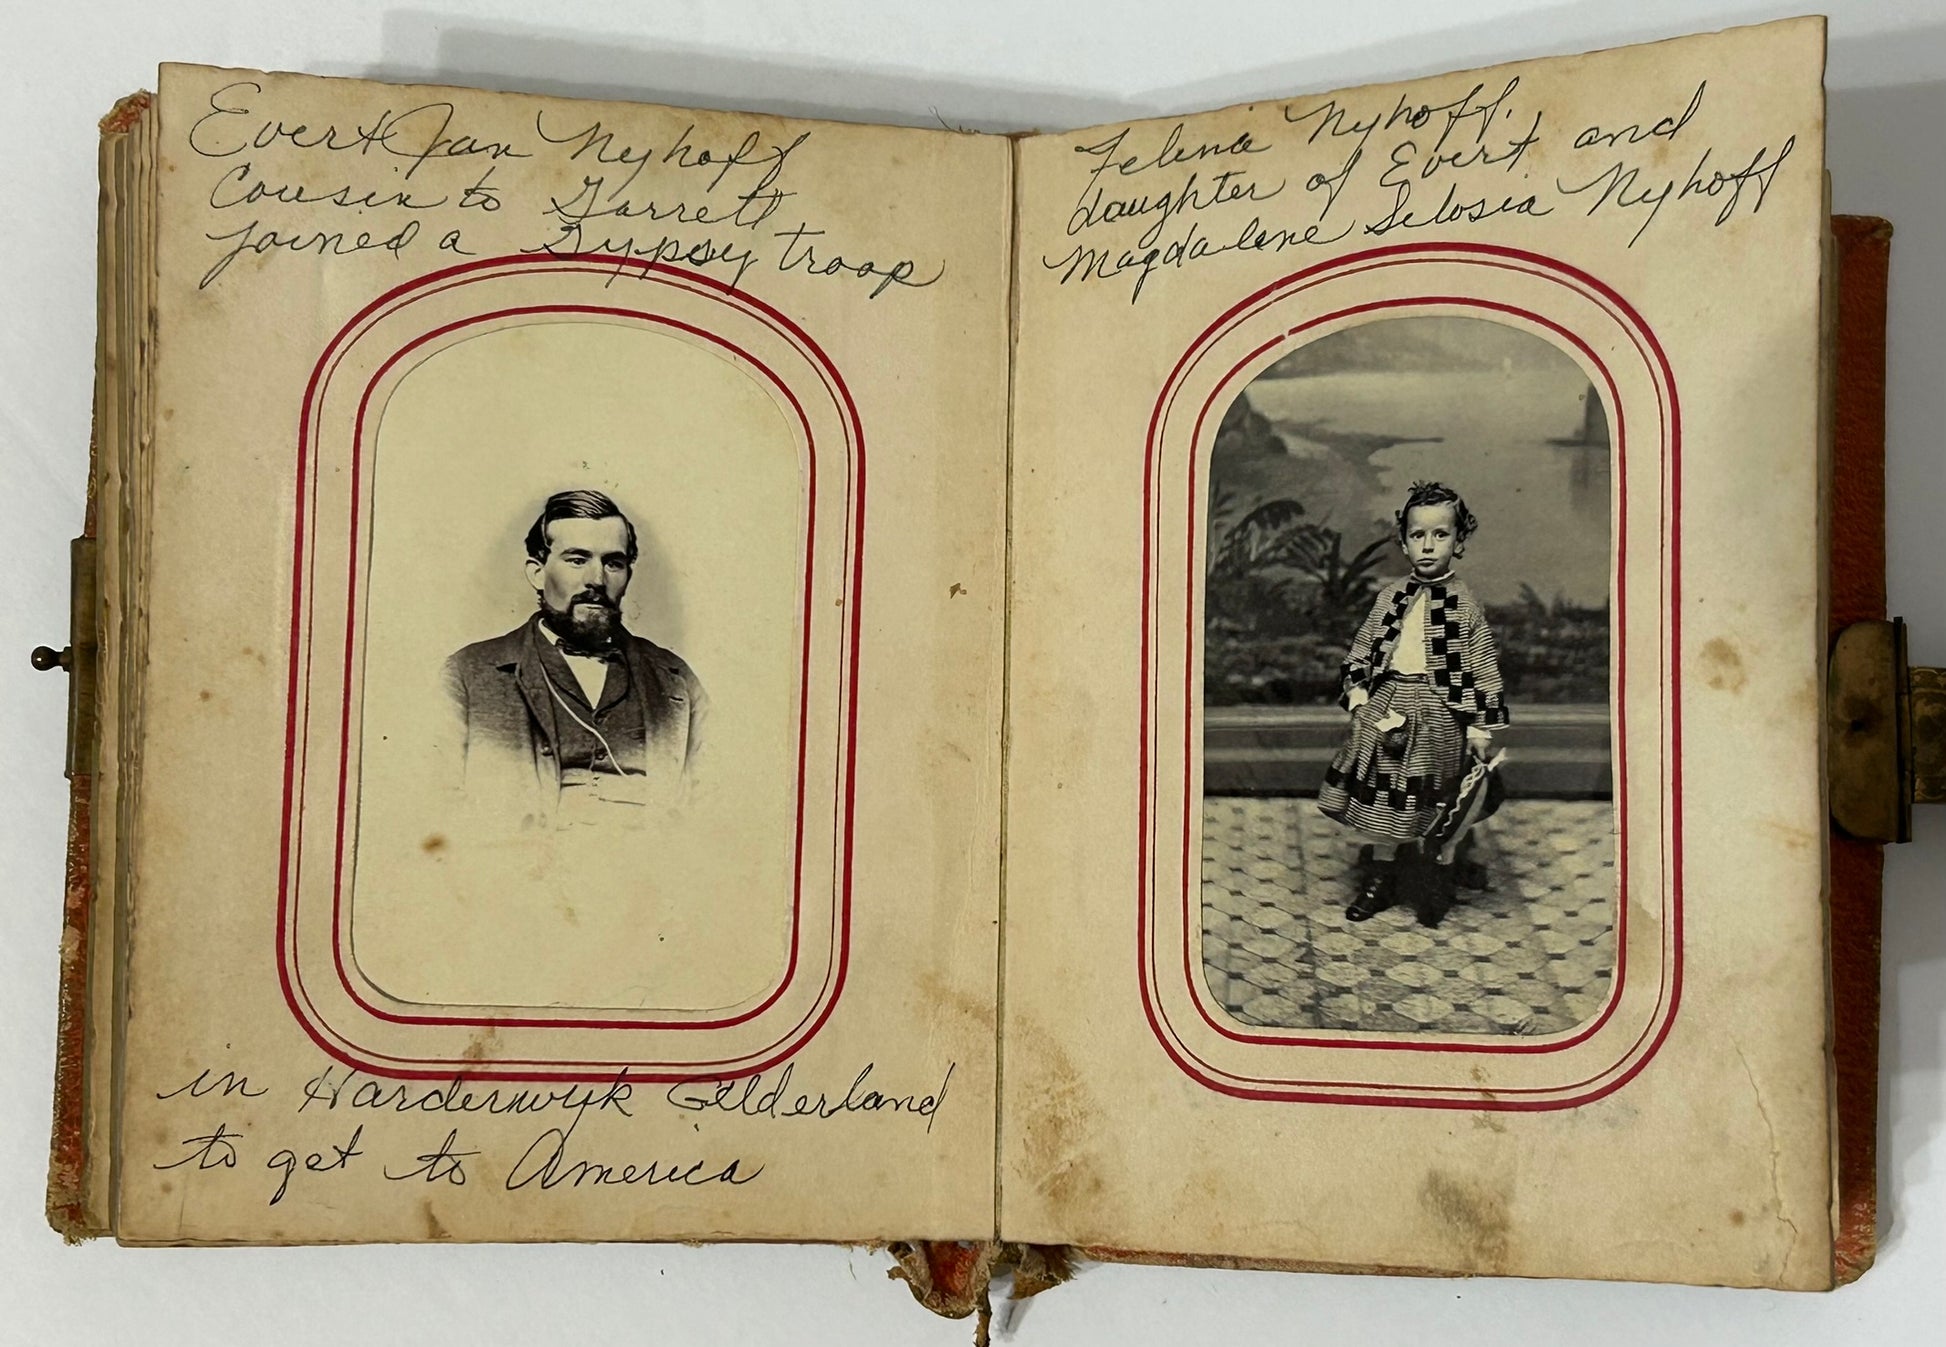 Evert Jan Nyhoff
Cousin to Garrett
joined a Gypsy troop
in Harderwyk Gelderland
to get to America
Felina Nyhoff.
daughter of Evert and
Magdalene Selosia Nyhoff